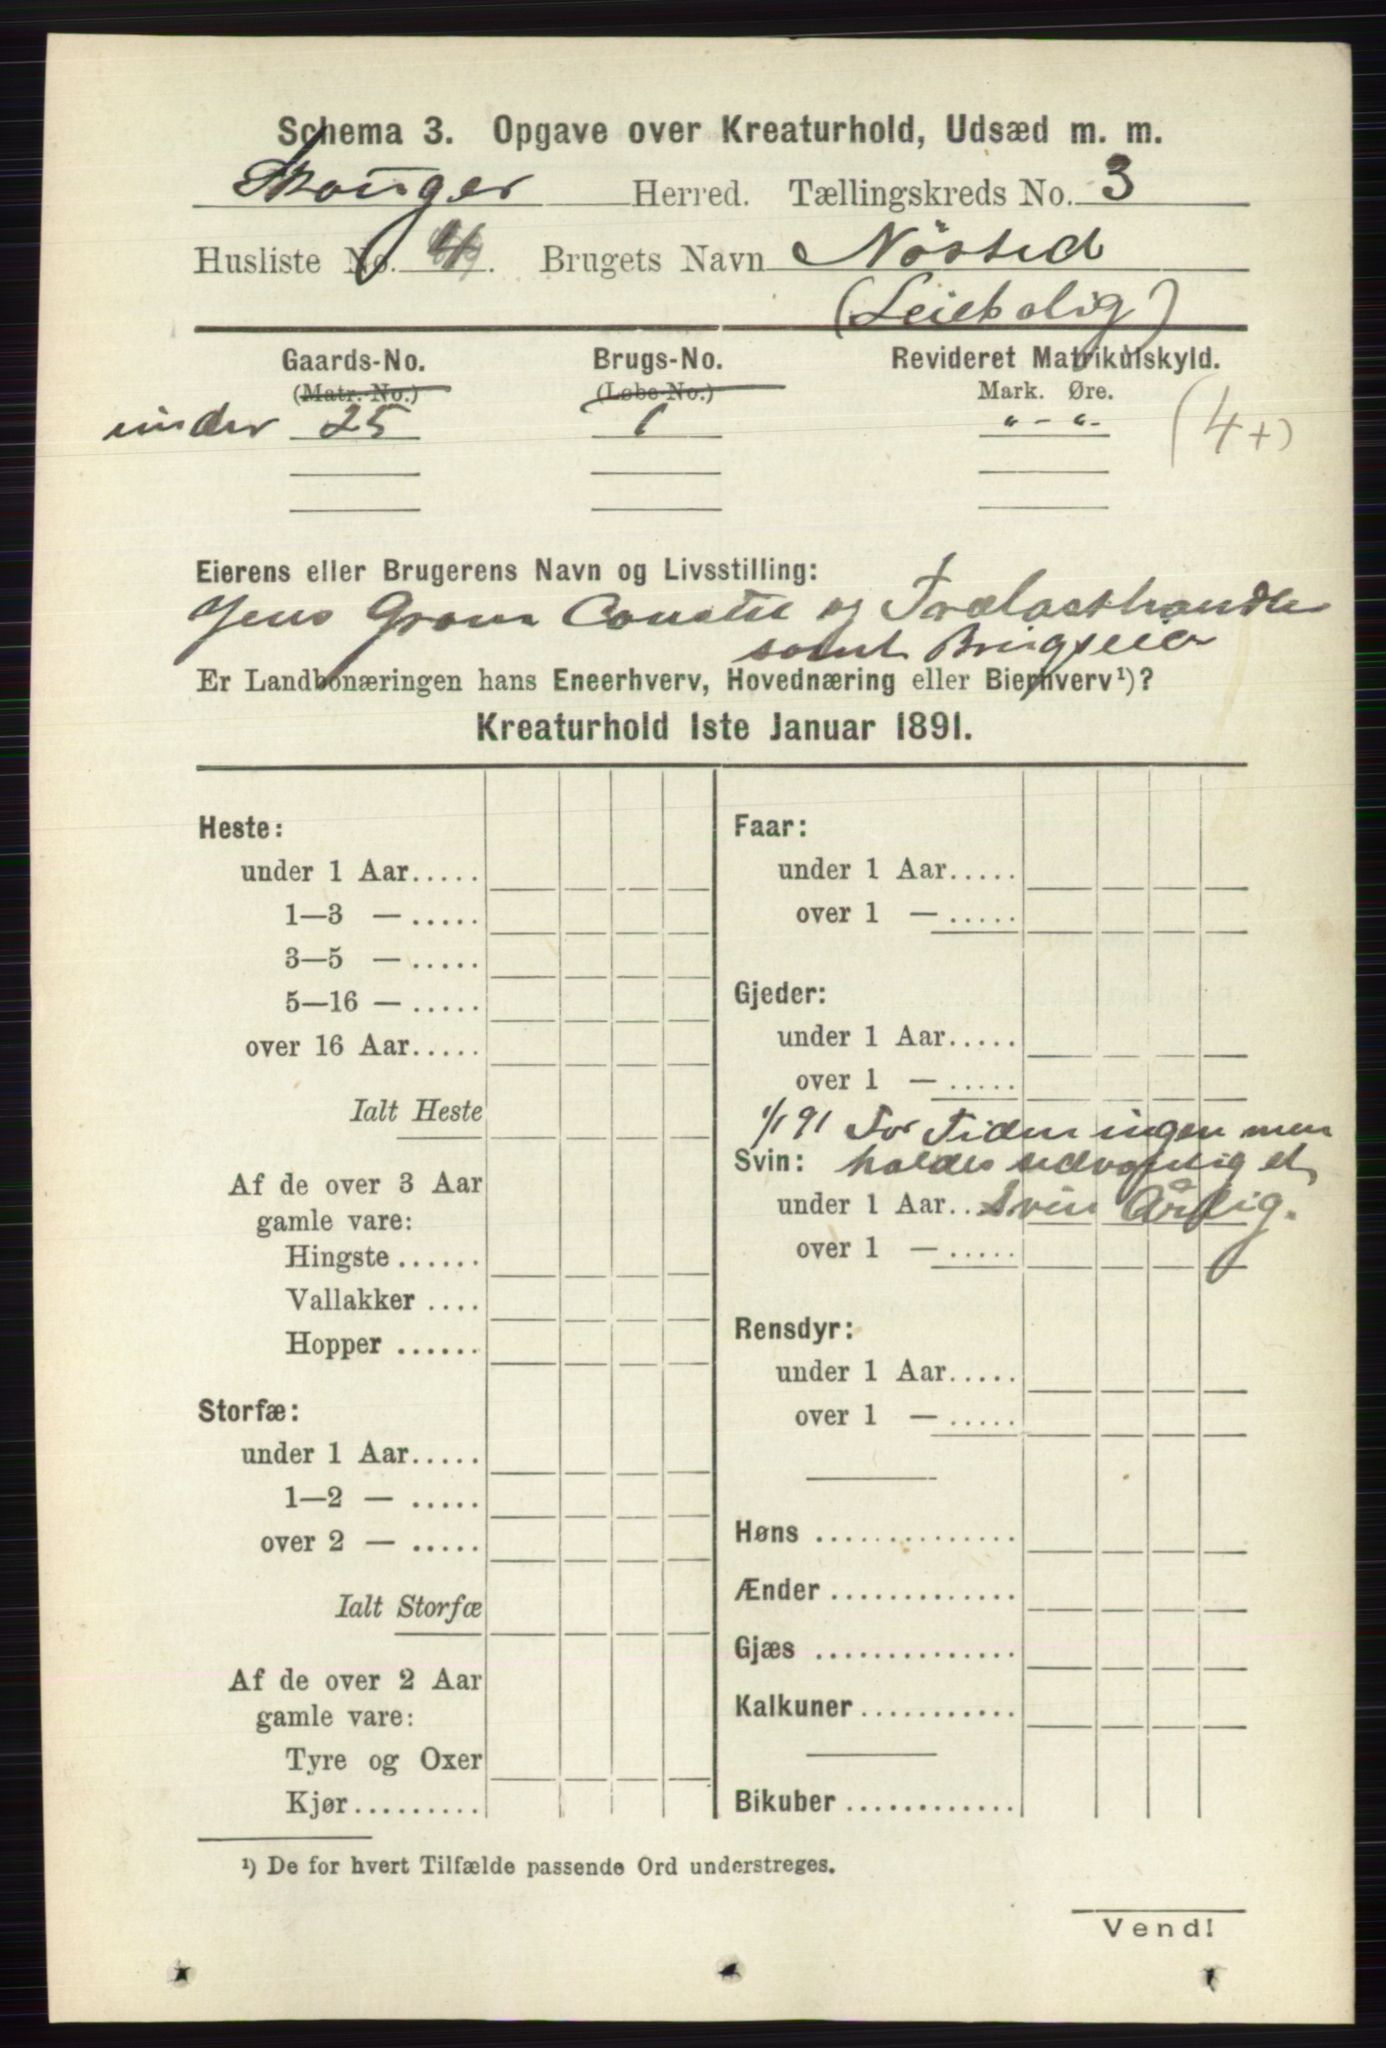 Schema 3. Opgave over Kreaturhold, Udsæd m. m.
Skouger Herred. Tællingskreds No. 3
Husliste No. 4. Brugets Navn Nösted
(Leiebolig)
Gaards-No. Brugs-No. Revideret Matrikulskyld.
(Matr.-No.) (Løbe-No.) Mark. Øre.
under 25 1 " - " - (4+)
Eierens eller Brugerens Navn og Livsstilling:
Jens Gram og Trælasthandler
samt Brugseier
Er Landbonæringen hans Eneerhverv, Hovednæring eller Bierhverv¹)?
Kreaturhold 1ste Januar 1891.
Heste:
under 1 Aar.....
1—3 — .....
3—5 — .....
5—16 — .....
over 16 Aar.....
Ialt Heste
Af de over 3 Aar
gamle vare:
Hingste ......
Vallakker ....
Hopper ......
Storfæ:
under 1 Aar.....
1—2 — .....
over 2 — .....
Ialt Storfæ
Af de over 2 Aar
gamle vare:
Tyre og Oxer
Kjør.........
Faar:
under 1 Aar.....
over 1 — .....
Gjeder:
under 1 Aar.....
over 1 — .....
1/1 91 For Tiden ingen men
Svin: holdes sedvanlig et
under 1 Aar.. Svin Årlig.
over 1 — .....
Rensdyr:
under 1 Aar.....
over 1 — .....
Høns ..............
Ænder .............
Gjæs ..............
Kalkuner ...........
Bikuber ............
¹) De for hvert Tilfælde passende Ord understreges.
Vend!